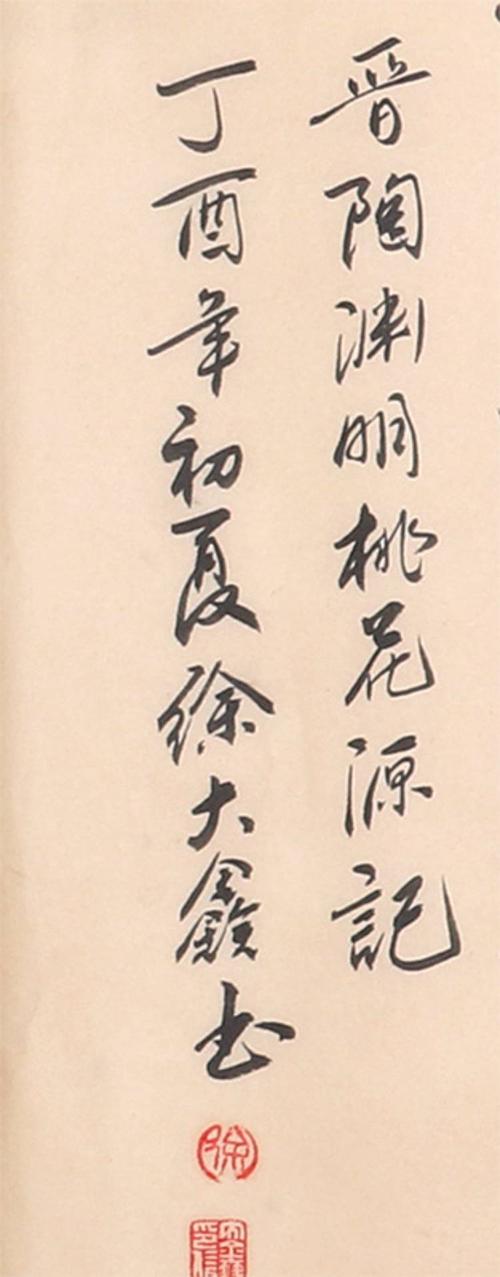 晋陶渊明桃花源記
丁酉年初夏徐大鑫书
徐